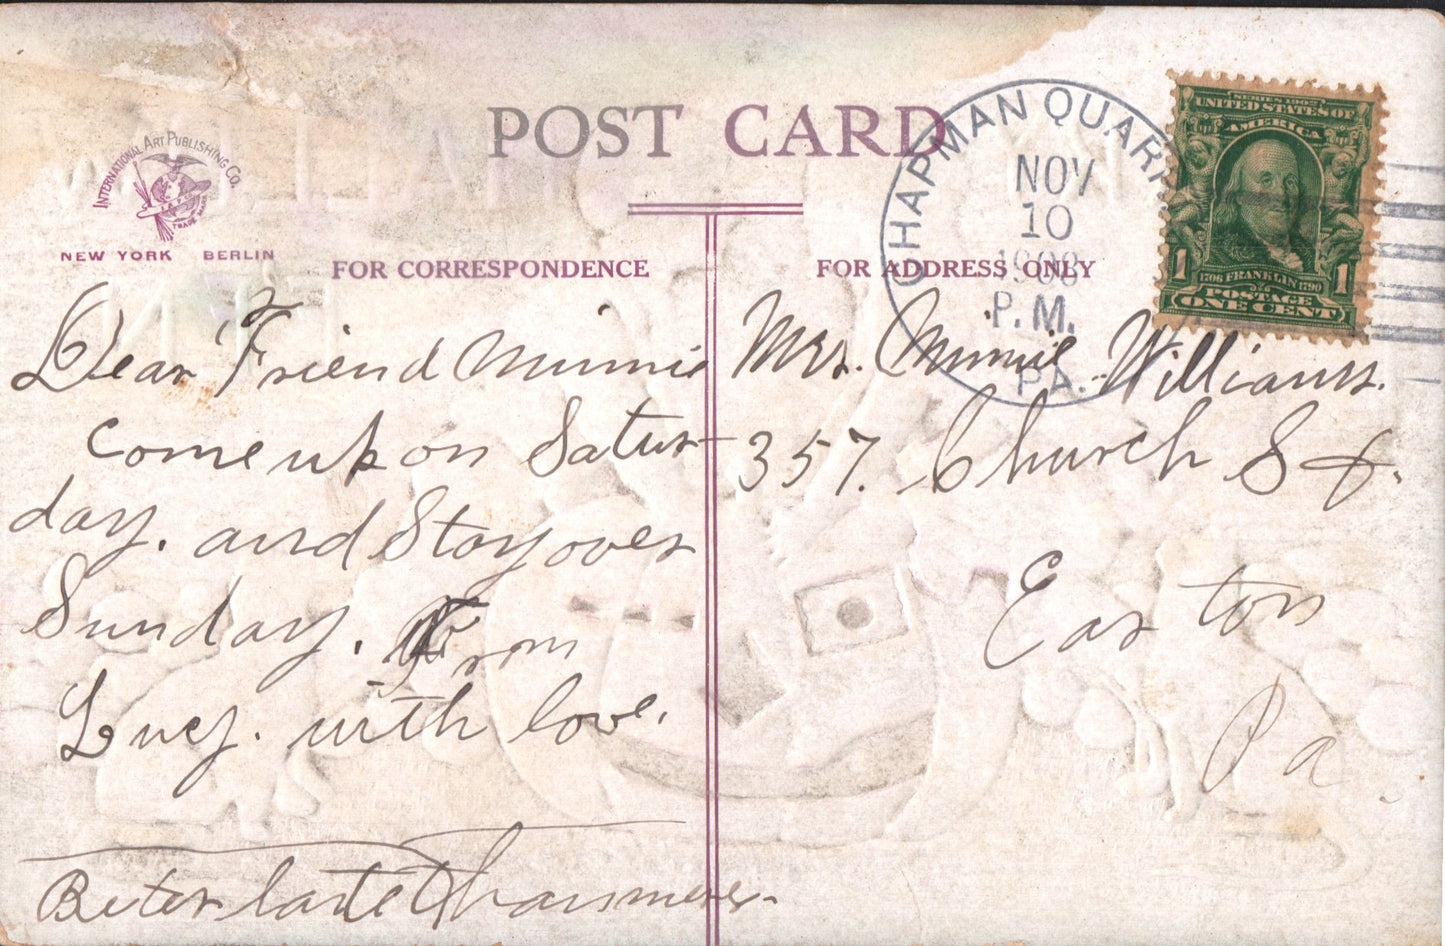 POST CARD
INTERNATIONAL ART PUBLISHING CO.
TRADE MARK
NEW YORK BERLIN
FOR CORRESPONDENCE
FOR ADDRESS ONLY
CHAPMAN QUAR
NOV
10
1908
P.M.
PA.
SERIES 1902
UNITED STATES OF
AMERICA
1 1
1706 FRANKLIN 1790
POSTAGE
ONE CENT
Dear Friend Minnie
come up on Satur
day. and Stay over
Sunday. From
Lucy. with love.
Beter late
Mrs. Minnie Williams.
357. Church St.
Easton
Pa.